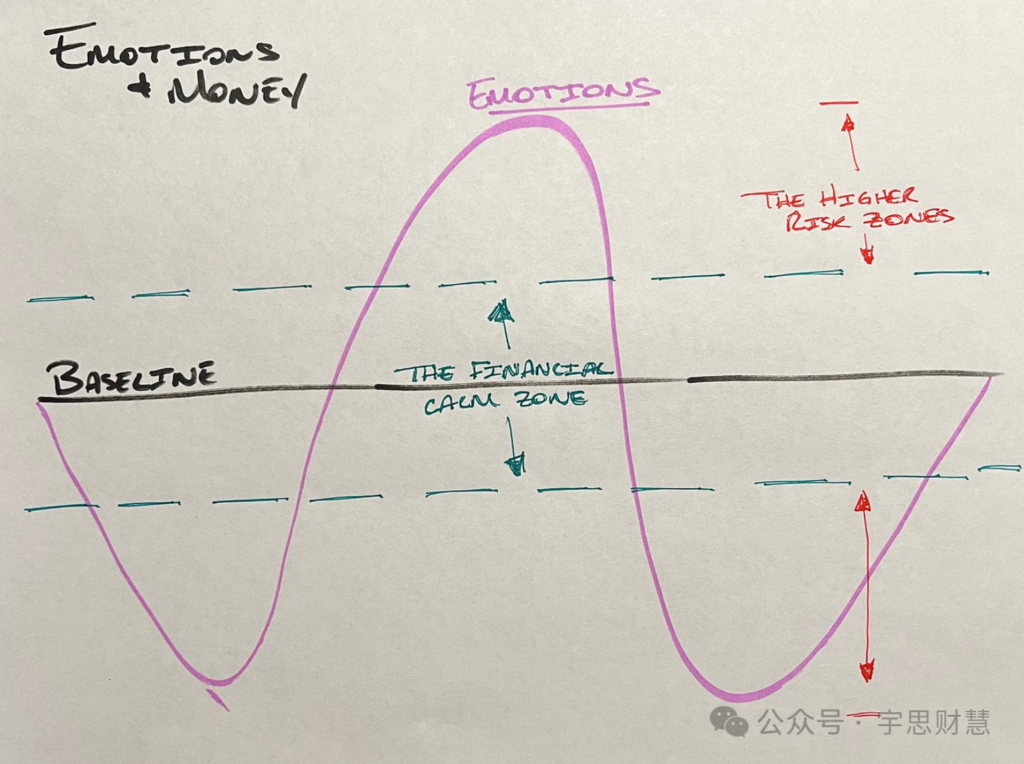 EMOTIONS
& MONEY
EMOTIONS
THE HIGHER
RISK ZONES
BASELINE
THE FINANCIAL
CALM ZONE
公众号 · 宇思财慧